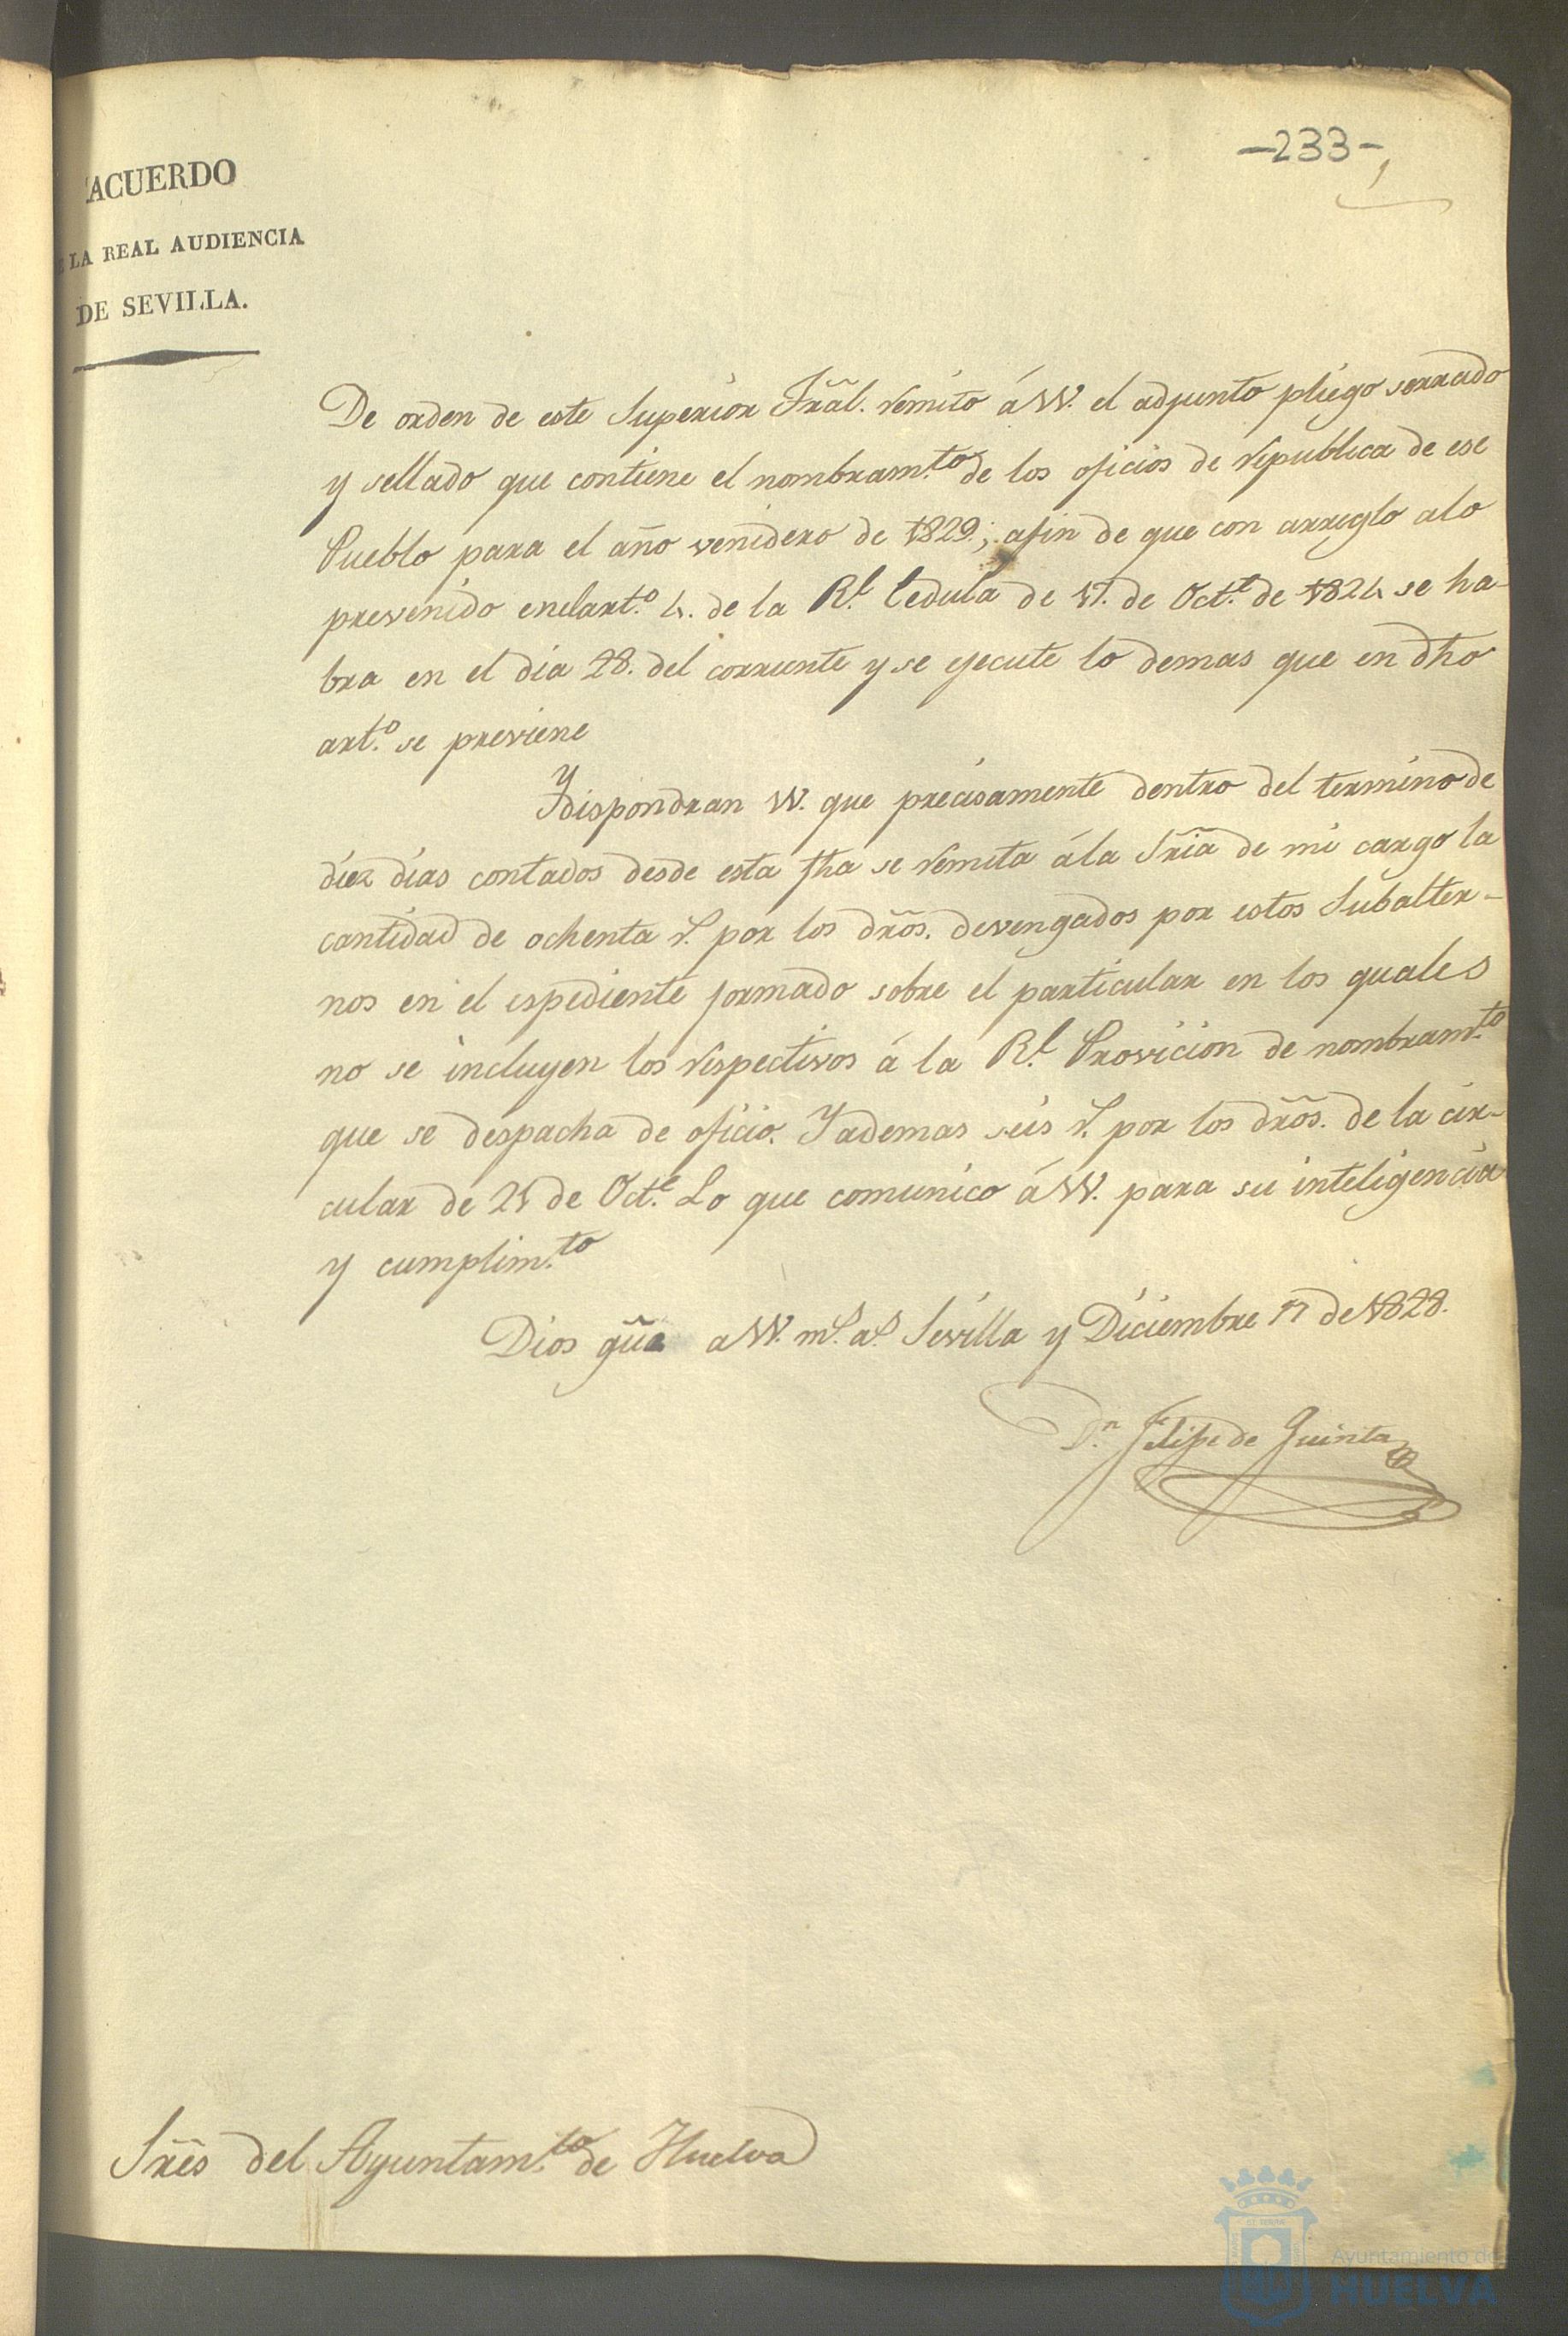 -233-
ACUERDO
LA REAL AUDIENCIA
DE SEVILLA.
De orden de este Superior Trãl. remito á VV. el adjunto pliego serrado
y sellado que contiene el nombram.to de los oficios de republica de ese
Pueblo para el año venidero de 1829; afin de que con arreglo alo
prevenido enelart.o 4. de la R.l Cedula de 17. de Oct.e de 1824 se ha-
bra en el dia 28. del corriente y se ejecute lo demas que en dho
art.o se previene
Y dispondran VV. que precisamente dentro del termino de
diez dias contados desde esta fha se remita á la Srĩa de mi cargo la
cantidad de ochenta r.s por los drõs. devengados por estos Subalter-
nos en el espediente formado sobre el particular en los quales
no se incluyen los respectivos á la R.l Provicion de nombram.to
que se despacha de oficio. Y ademas seis r.s por los drõs. de la cir-
cular de 21 de Oct.e Lo que comunico á VV. para su inteligencia
y cumplim.to
Dios gũe a VV. m.s a.s Sevilla y Diciembre 17 de 1828.
D.n Felipe de Quinta
Srẽs del Ayuntam.to de Huelva
Ayuntamiento de
HUELVA